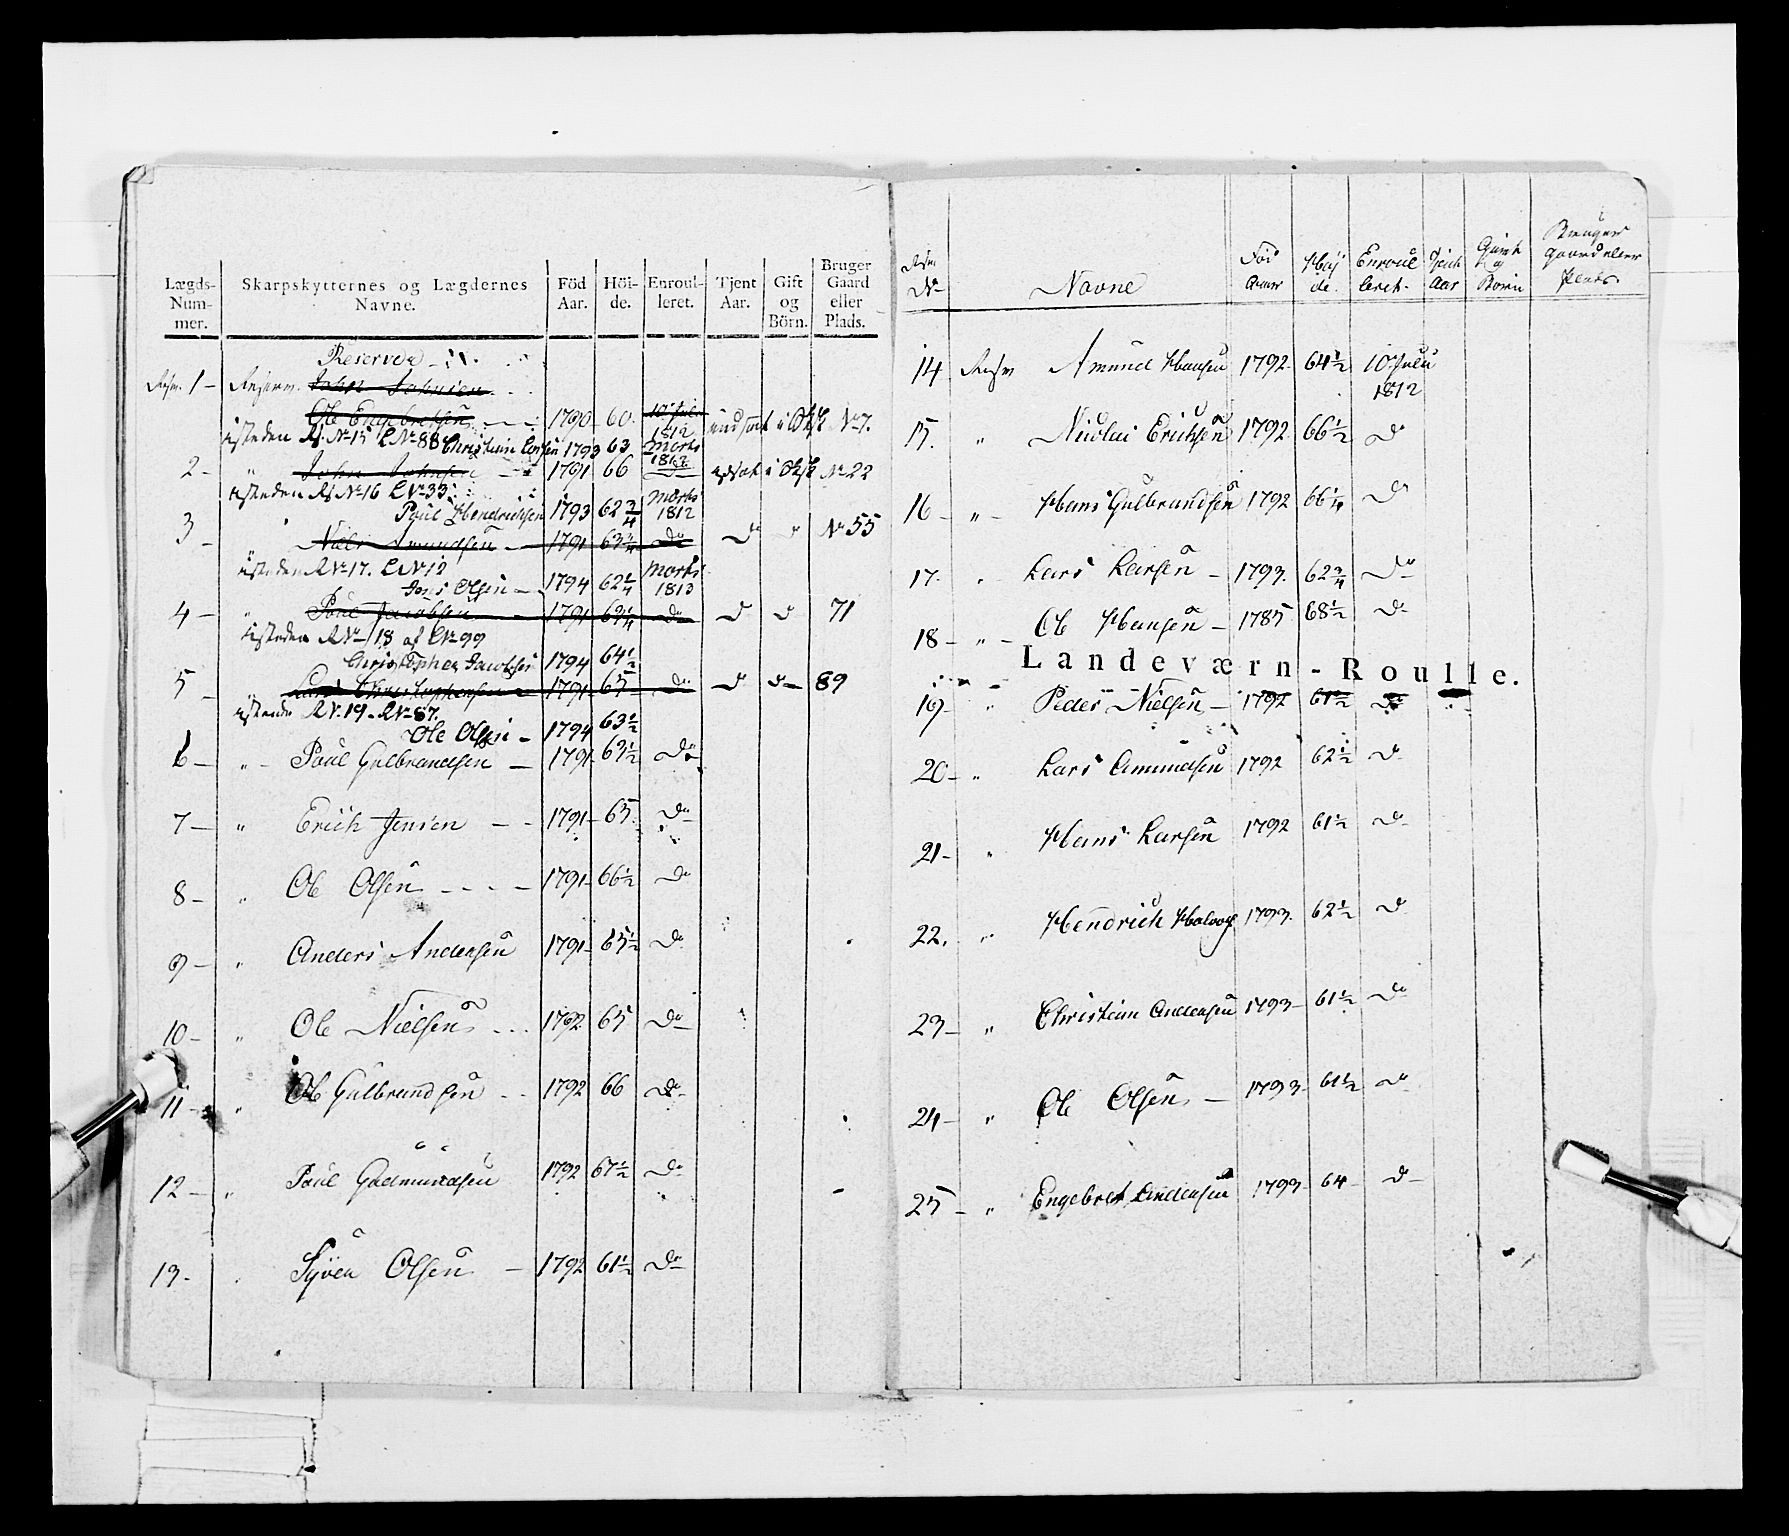 Lægds-Num-mer. Skarpskytternes og Lægdernes Navne. Föd Aar. Höi-de. Enroul-leret. Tjent Aar. Gift og Börn. Bruger Gaard eller Plads.
Reserver
Resv. 1 - Reserv. John Johnsen
Ole Engebretsen 1790 60 10 Julii 1812 indsat i No 7.
isteden Rs. No 15 L No 88 Christian Larsen 1793 63 Marts 1812
2 - " John Johnsen 1791 66 udsat i No 22
isteden Rs No 16 L No 33
Paul Hendrichsen 1793 62 3/4 Marts 1812
3 - Niels Amundsen 1791 63 3/4 Do Do No 55
isteden R No 17. L No 12
Jens Olsen 1794 62 1/4 Marts 1813
4 - " Paul Jacobsen 1791 63 1/4 Do D D 71
isteden R No 18 af L No 99
Christopher Jacobsen 1794 64 1/2
5 - " Lars Christophersen 1791 65 Do D D 89
isteden R No. 19 - L No 87.
Ole Olsen - 1794 63 1/2
6 - " - Paul Gulbrandsen - 1791 63 1/2 Do
7 - " Erich Jensen - - 1791 65 Do
8 - " Ole Olsen - - - - 1791 66 1/2 Do
9 - " Anders Andersen 1791 65 1/2 Do
10 - " Ole Nielsen - - - 1792 65 Do
11 - " Ole Gulbrandsen - - 1792 66 Do
12 - " Paul Gudmundsen 1792 67 1/2 Do
13 - Syver Olsen - 1792 61 1/2 Do
Resv. No Navne Föd Aar Höi de. Enroul leret. Tjent Aar Givt og Börn Bruger Gaard eller Plads
14 Resv Amund Hansen 1792 64 1/2 10 Julii 1812
15. " Nicolai Erichsen 1792 66 1/2 Do
16 - " - Hans Gulbrandsen 1792 66 1/4 Do
17. " Lars Larsen - 1793. 62 3/4 Do
18 - " - Ole Hansen - 1785 68 1/2 Do
Landeværn-Roulle.
19 - " Peder Nielsen - 1792 61 1/2 Do
20 - " Lars Amundsen 1792 62 1/2 Do
21 - " Hans Larsen 1792 61 1/2 Do
22. " Hendrich Halvors 1793. 62 1/2 Do
23 - " Christian Andersen 1793 - 61 1/2 Do
24 - " Ole Olsen - 1793 - 61 1/2 Do
25 - " Engebret Andersen 1793 - 64 - Do